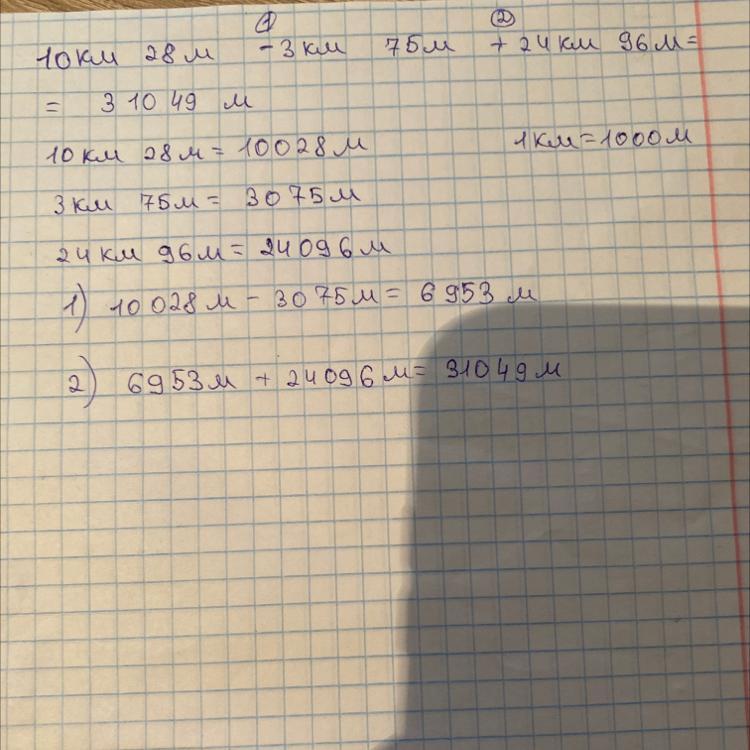 ① ②
10км 28м - 3км 75м + 24км 96м =
= 31049 м
10км 28м = 10028м 1км = 1000м
3км 75м = 3075м
24км 96м = 24096м
1) 10028м - 3075м = 6953 м
2) 6953м + 24096м = 31049м